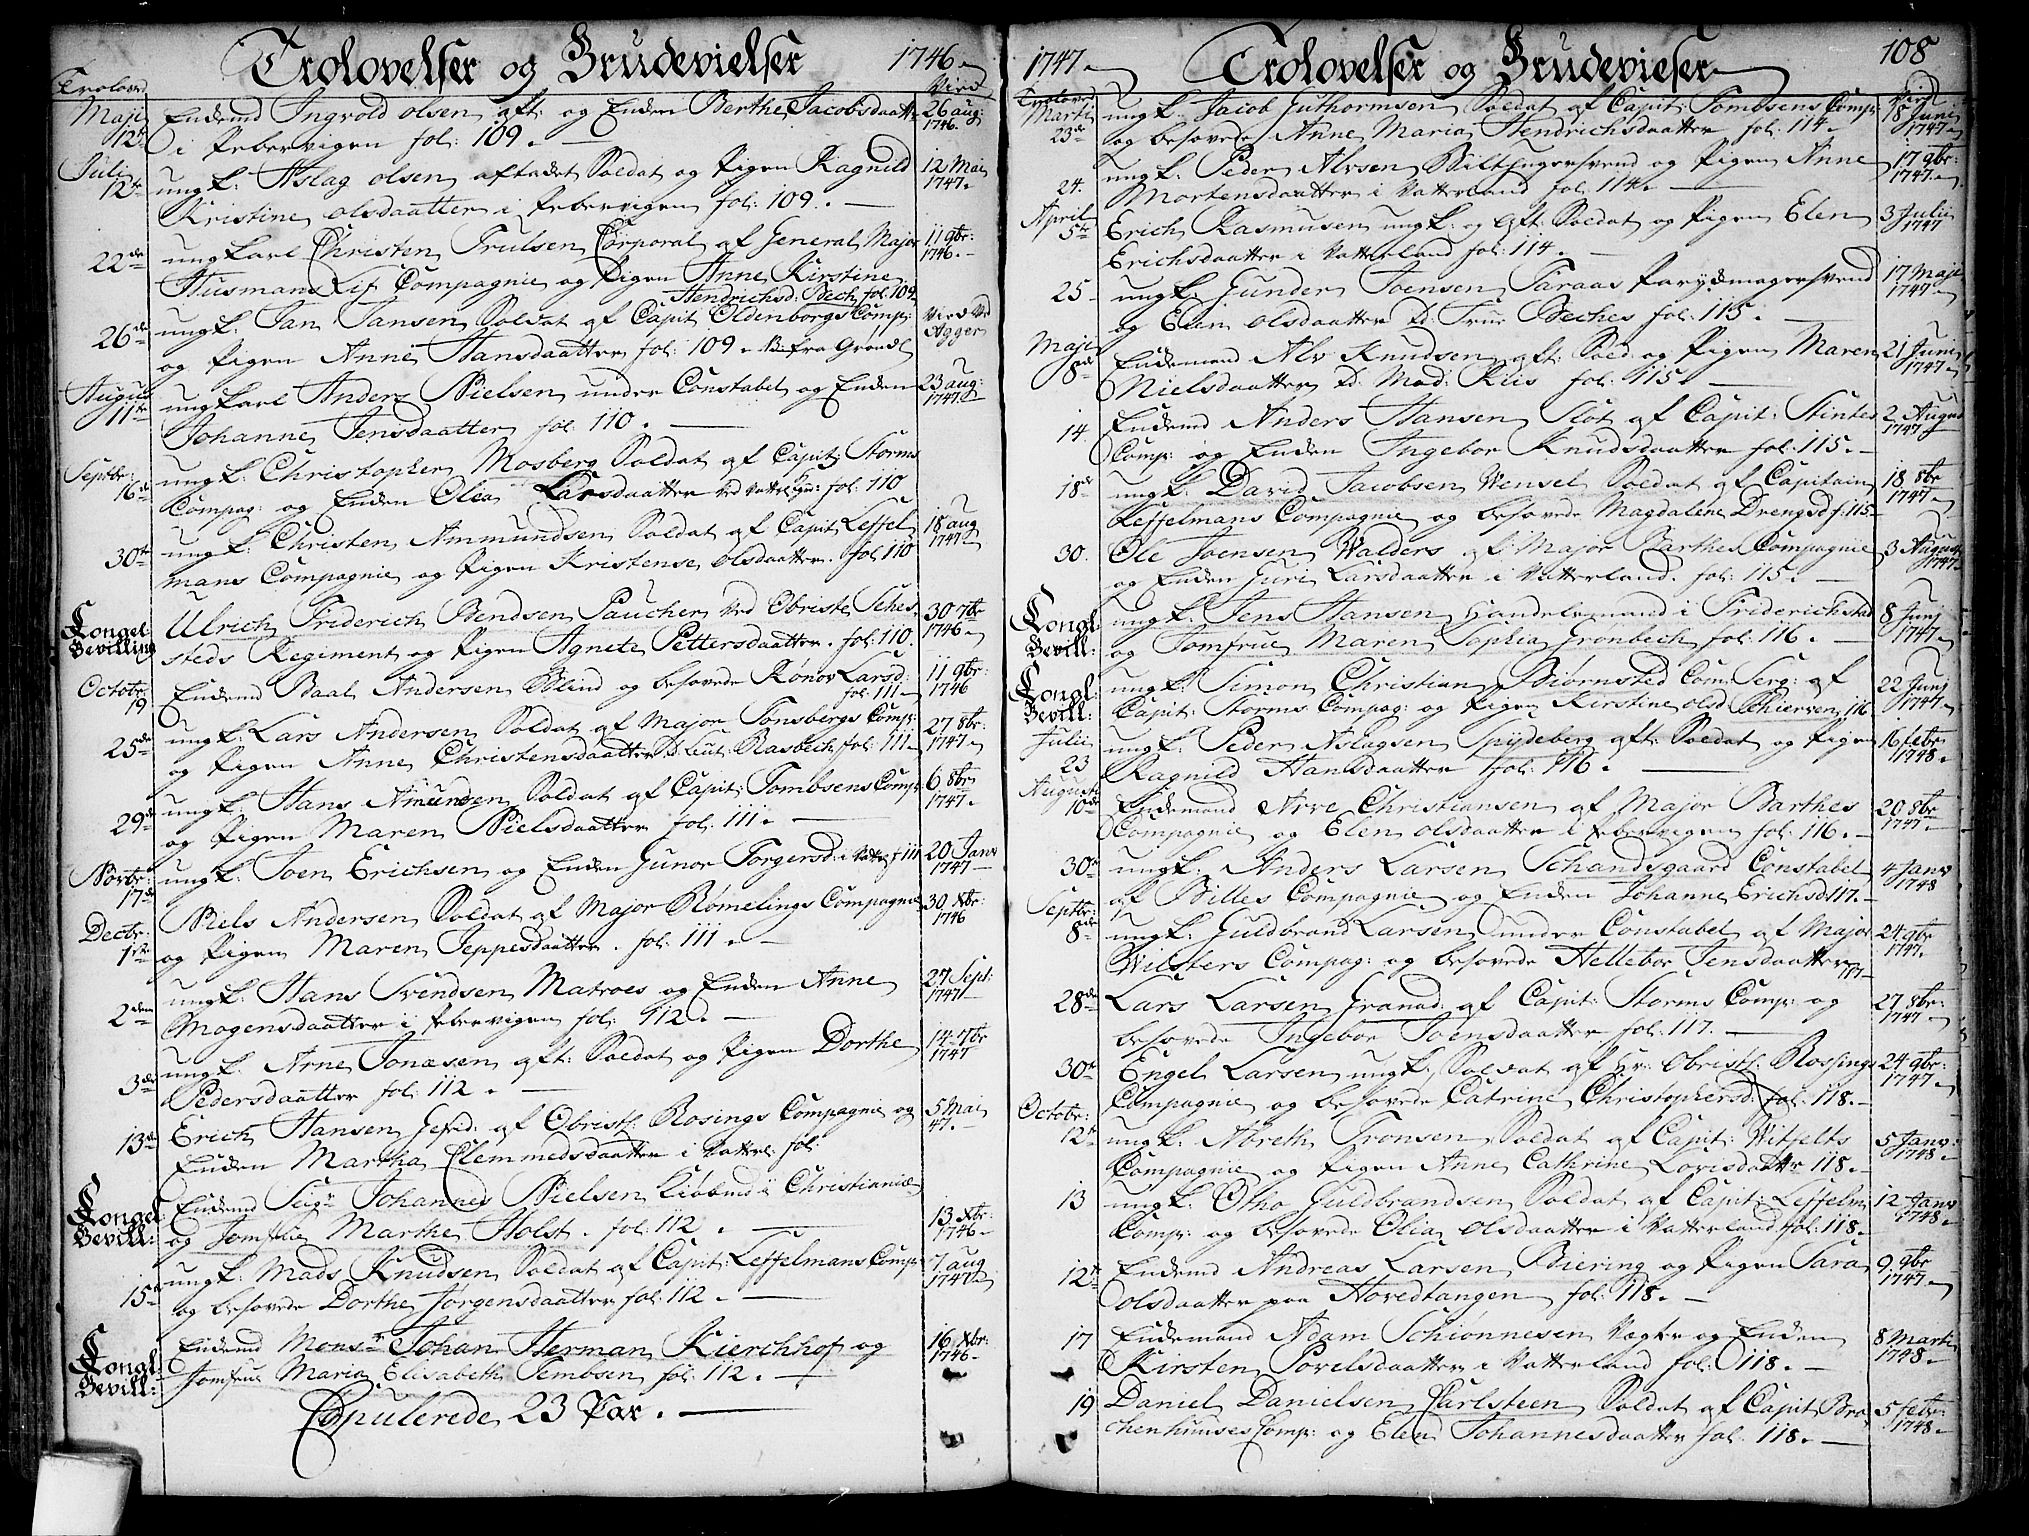 Trolovelser og Brudevielser 1746
Trolovd
Vied
Maji 12t Enkemd Ingvold Olsen aft: og Enken Berthe Jacobsdaatter 26 aug: 1746.
i Pebervigen fol: 109.
Julii 12te ungk: Aslag Olsen aftadet Soldat og Pigen Ragnild 12 Maj 1747.
Kristine Olsdaatter i Pebervigen fol: 109.
22de ungkarl Christen Trulsen Corporal af General Major 11 9br: 1746.
Husmans Lif Compagnie og Pigen Anne Kirstine
Hendrichsd: Bech fol: 109
26de ungk: Jan Jansen Soldat af Capit Oldenborgs Comp: Vied ved Agger
og Pigen Anne Hansdaatter fol: 109. fra Grønd
August 11te ungkarl Anders Nielsen under Constabel og Enken 23 aug: 1747
Johanne Jensdaatter fol: 110.
Septbr: 16de ungk: Christopher Mosberg Soldat af Capit: Storms
Compag: og Enken Olea Larsdaatter fol: 110
30te ungk: Christen Ammundsen Soldat af Capit Leffel 18 aug 1747
mans Compagnie og Pigen Kristense Olsdaatter. fol: 110
Kongel: Bevilling Ulrich Friderich Bendsen Paucher ved Obriste Sehes 30 7br 1746
steds Regiment og Pigen Agnete Pettersdaatter. fol: 110.
Octobr: 19 Enkemd Baal Andersen Blind og besovede Kønov Larsd: 11 9br: 1746
fol: 111
25de ungk: Lars Andersen Soldat af Major Tonsbergs Comp: 27 8br: 1747
og Pigen Anne Christensdaatter Lieut: Rasbech fol: 111
29de ungk: Hans Amundsen Soldat af Capit: Tombsens Comp: 6 8br: 1747.
og Pigen Maren Nielsdaatter fol: 111.
Novbr: 17de ungk: Joen Erichsen og Enken Gunor Torgersd: i Vatterl: f 111 20 Janv 1747
Decbr: 1ste Niels Andersen Soldat af Major Rømelings Compagnie 30 Xbr: 1746
og Pigen Maren Jeppesdaatter. fol: 111.
2den ungk: Hans Svendsen Matroes og Enken Anne 27 Sept: 1747
Mogensdaatter i Pebervigen fol: 112.
3de ungk: Arne Jonasen aft: Soldat og Pigen Dorthe 14 7br 1747
Pedersdaatter fol: 112.
13de Erich Hansen Gefrid: af Obristl: Rosings Compagnie og 5 Maj 47.
Enken Martha Clemmedsdaatter i Vatterl: fol:
Kongel: Bevill: Enkemd Seigr Johannes Nielsen Kiøbmd i Christianiæ
og Jomfrue Marthe Holst. fol: 112. 13 Xbr: 1746
15de ungk: Mads Knudsen Soldat af Capit: Leffelmans Comp: 7 aug 1747
og besovede Dorthe Jørgensdaatter fol: 112.
Kongl: Bevill: Enkemd Monsr Johan Herman Kierchhof og 16 Xbr: 1746
Jomfrue Maria Elisabeth Tembsen fol: 112.
Copulerede 23 Par.
1747 Trolovelser og Brudevieser 108
Trolovd
Vied
Martii 23de ungk: Jacob Guthormsen Soldat af Capit: Tombsens Comp: 18 Junii 1747
og besovede Anne Maria Hendrichsdaatter fol: 114.
24. ungk: Peder Alvsen Biltfugersvend og Pigen Anne 17 9br: 1747
Mortensdaatter i Vatterland fol: 114.
April 5te Erich Rasmusen ungk: og aft: Soldat og Pigen Elen 3 Julii 1747
Erichsdaatter i Vatterland fol: 114.
25 ungk: Gunder Joensen Faraas Parydmagersvend 17 Maji 1747
og Elen Olsdaatter Frue Beches fol: 115.
Maji 8de Enkemand Alv Knudsen aft: Sold: og Pigen Maren 21 Junii 1747
Nielsdaatter Mad: Kiis fol: 115.
14. Enkemd Anders Hansen Slot af Capit: Stintes 2 August 1747
Comp: og Enken Ingebor Knudsdaatter fol: 115.
18de ungk: David Jacobsen Wensel Soldat af Capitain 18 8br 1747
Leffelmans Compagnie og besovede Magdalene Drengsd f: 115
30. Ole Joensen Walders af Major Barthes Compagnie 3 August 1747
og Enken Guri Larsdaatter i Vatterland. fol: 115.
Kongl: Bevill: ungk: Jens Hansen Handelsmand i Friderichstad 8 Junj 1747
og Jomfrue Maren Sophia Gronbech fol: 116.
Kongl: Bevill: ungk: Simon Christian Biørnsted Com: Serg: af 22 Junj 1747
Capit: Storms Compag: og Pigen Kirstine Olsd Schierven 116
Julii 23 ungk: Peder Aslagsen Spydeberg aft: Soldat og Pigen 16 febr: 1748
Ragnild Hansdaatter fol: 116.
August 10de Enkemand Arve Christiansen af Major Barthes 20 8br 1747.
Compagnie og Elen Olsdaatter i Pebervigen fol: 116.
30te ungk: Anders Larsen Schandsgaard Constabel 4 Janv 1748
af Billes Compagnie og Enken Johanne Erichsd 117.
Septbr: 8de ungk: Guldbrand Larsen under Constabel af Major 24 9br 1747.
Wilsters Compag: og besovede Hellebor Jensdaatter 117
28de Lars Larsen Granad: af Capit: Storms Comp: og 27 8br: 1747
besovede Ingebor Joensdaatter fol: 117.
30te Engel Larsen ungk: Soldat af Hr: Obristl: Rossings 24 9br: 1747
Compagnie og besovede Catrine Christophersd: fol: 118.
Octobr: 12te ungk: Abreth Tronsen Soldat af Capit: Witfelts 5 Janv: 1748
Compagnie og Pigen Anne Cathrine Lovisdattr 118.
13 ungk: Otho Guldbrandsen Soldat af Capit: Leffelm 12 Janv 1748.
Comp: og besovede Olia Olsdaatter i Vatterland fol: 118.
12te Enkemd Andreas Larsen Biering og Pigen Sara 9 9br 1747
Olsdaatter paa Hovedtangen fol: 118.
17 Enkemand Adam Schionnesen Vægter og Enken 8 Martii 1748.
Kirsten Povelsdaatter i Vatterland fol: 118.
19 Daniel Danielsen Carlsteen Soldat af Capit Bro 5 febr: 1748.
chenhuuses Comp: og Elen Johannesdaatter fol: 118.